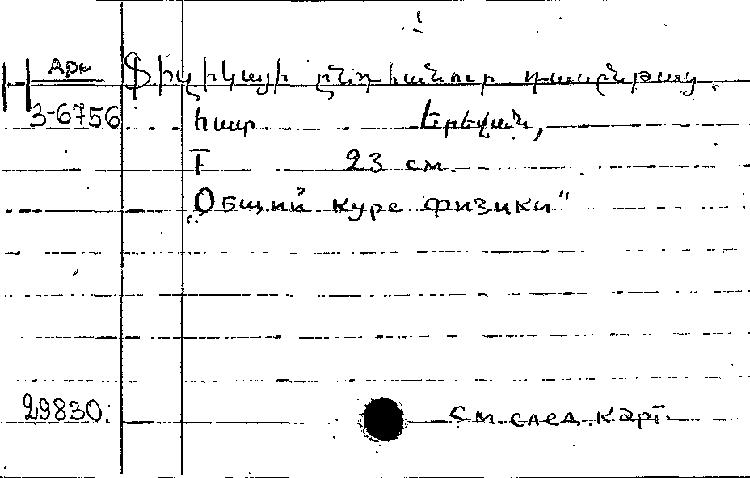 Арм Ֆիզիկայի ընդհանուր դասընթաց.
3-6756 հատ Երևան,
I 23 см.
„Общий курс физики"
29830. См. след. карт.